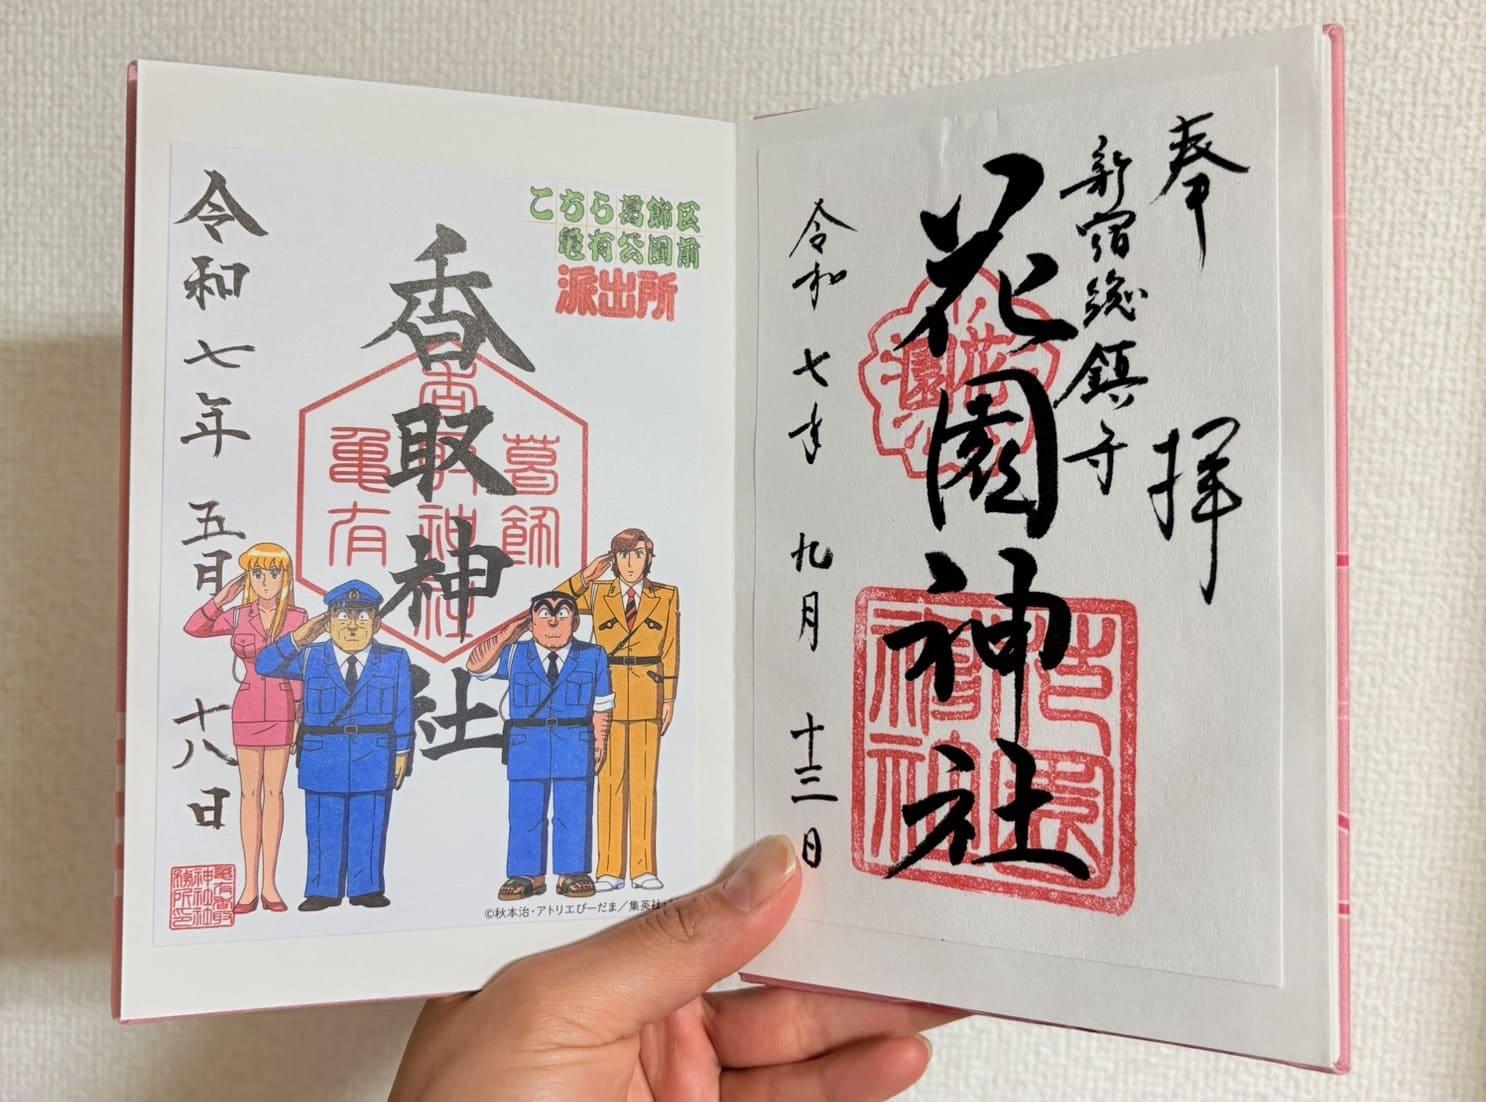 奉拝
新宿総鎮守
花園神社
令和七年 九月 十三日
こちら葛飾区
亀有公園前
派出所
香取神社
葛飾
香取神社
亀有
令和七年 五月 十八日
亀有香取
神社社
務所印
©秋本治・アトリエびーだま／集英社